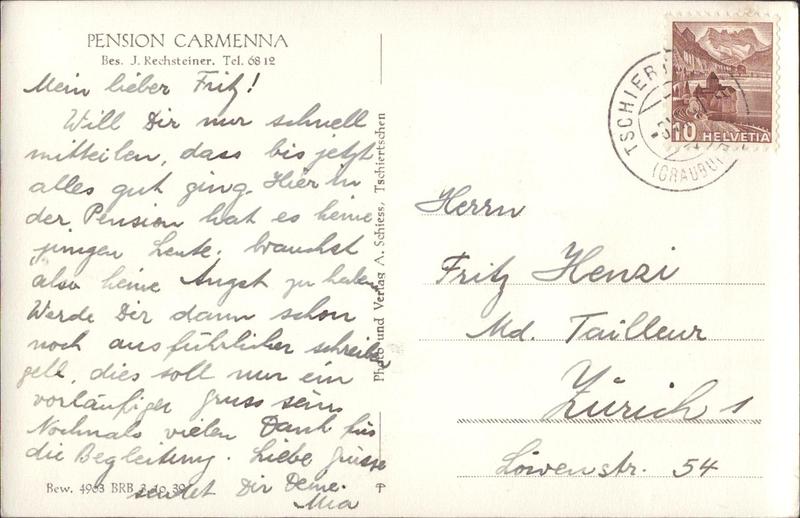 PENSION CARMENNA
Bes. J. Rechsteiner. Tel. 68 12
Mein lieber Fritz!
Will Dir nur schnell
mitteilen, dass bis jetzt
alles gut ging. Hier in
der Pension hat es keine
jungen Leute, brauchst
also keine Angst zu haben.
Werde Dir dann schon
noch ausführlicher schreiben
gell, dies soll nur ein
vorläufiger Gruss sein
Nochmals vielen Dank für
die Begleitung. Liebe Grüsse
sendet Dir Deine
Mia
Bew. 4963 BRB 3. 10. 39
Photo und Verlag A. Schiess, Tschiertschen
TSCHIER
(GRAUBÜ
10 HELVETIA
Herrn
Fritz Henzi
Md. Tailleur
Zürich 1
Löwenstr. 54